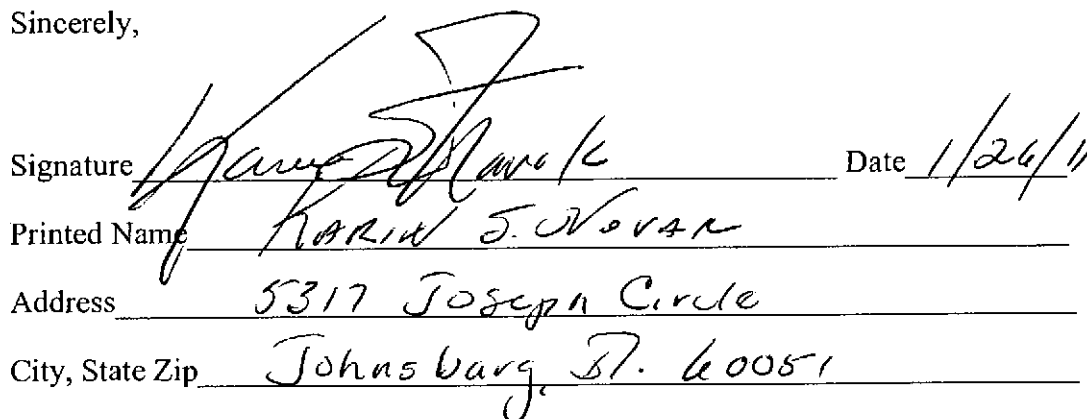 Sincerely,
Signature Karin S. Novak Date 1/26/11
Printed Name KARIN S. NOVAK
Address 5317 Joseph Circle
City, State Zip Johnsburg, Il. 60051